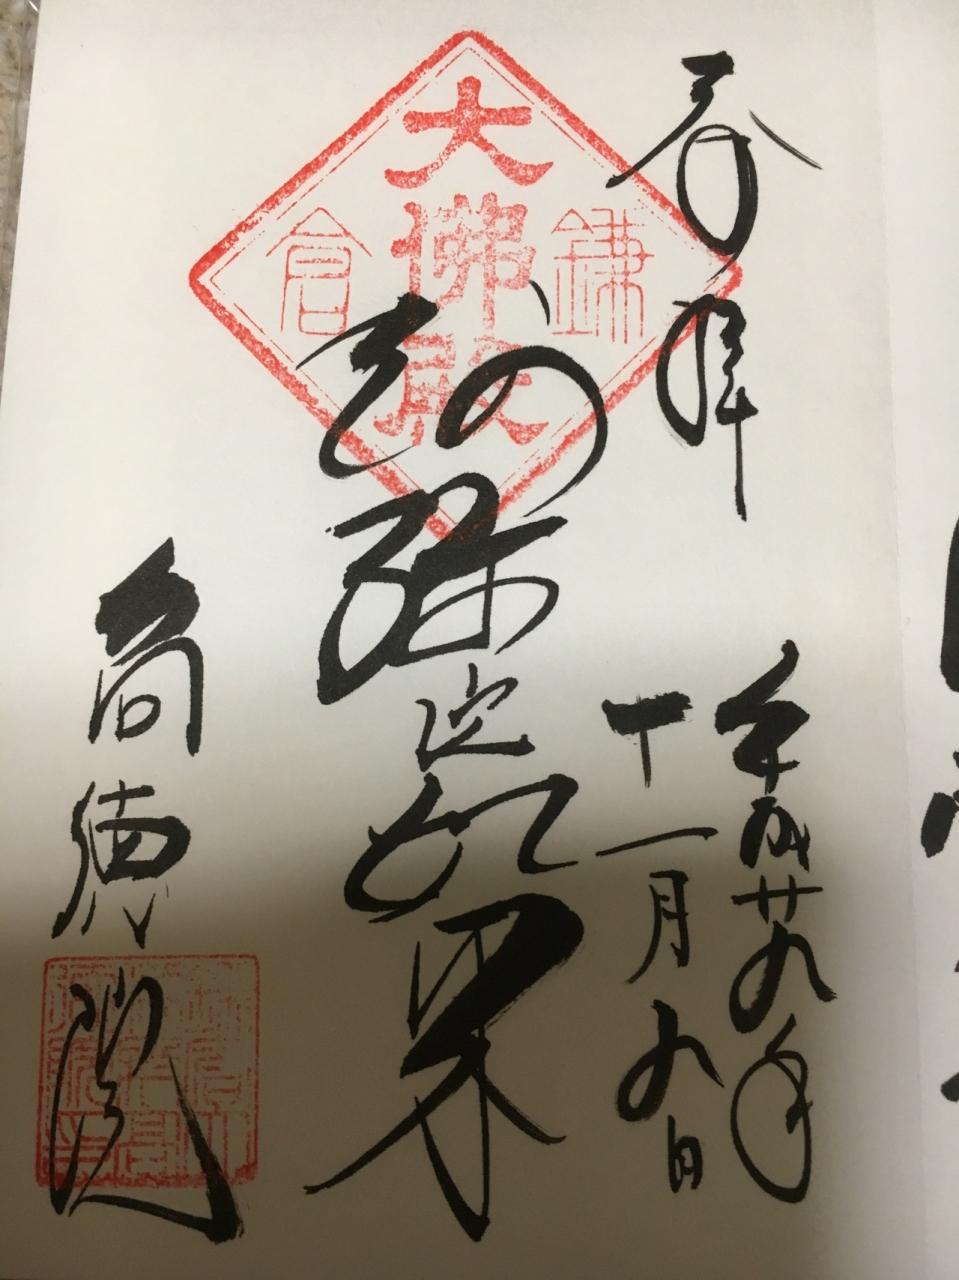 奉拝
平成廿九年
十一月九日
大佛殿
鎌倉
阿弥陀如来
高徳院